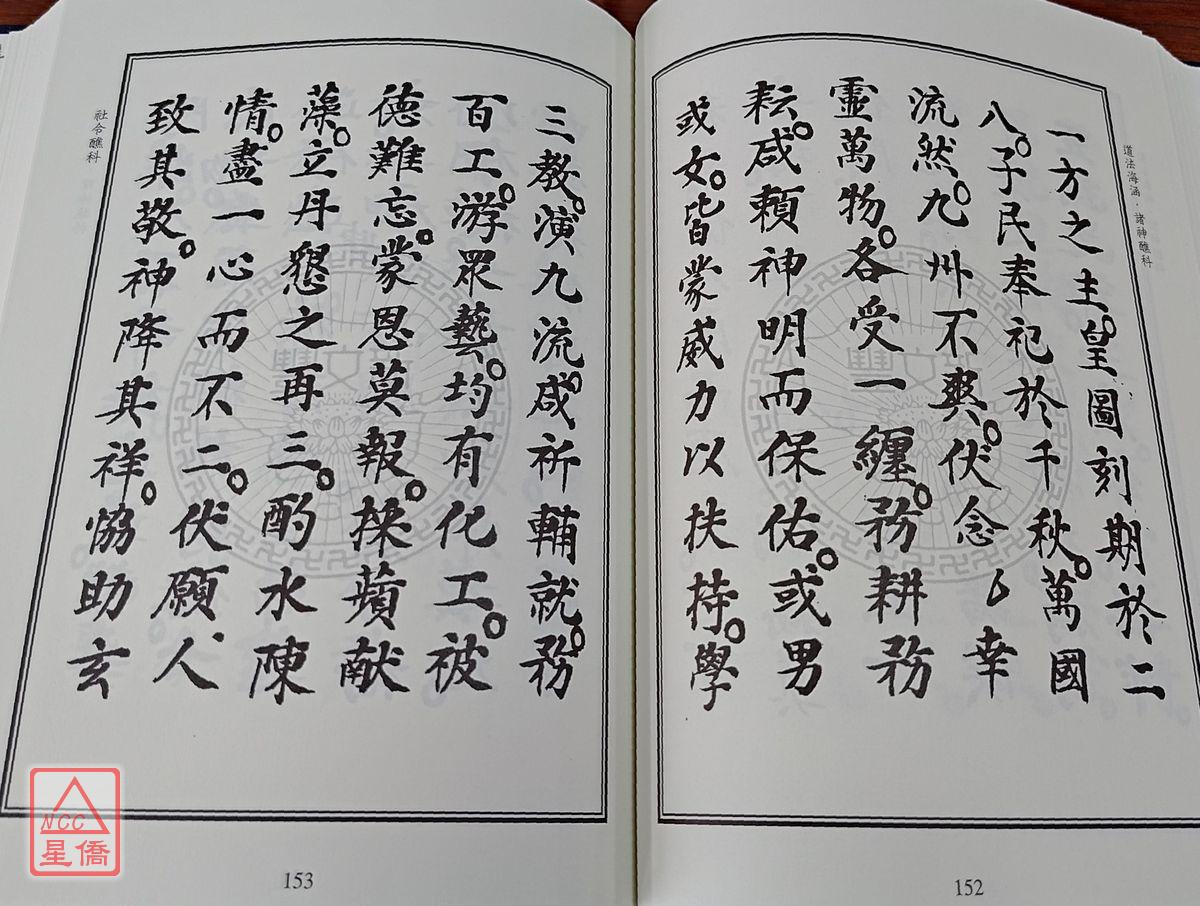 道法海涵·諸神醮科
一方之主。皇圖刻期於二
八。子民奉祀於千秋。萬國
流然。九州不爽。伏念 幸
靈萬物。各受一纏。務耕務
耘。咸賴神明而保佑。或男
或女。皆蒙威力以扶持。學
152
三教。演九流。咸祈輔就。務
百工。游眾藝。均有化工。被
德難忘。蒙恩莫報。採蘋献
藻。立丹懇之再三。酌水陳
情。盡一心而不二。伏願人
致其敬。神降其祥。恊助玄
社令醮科
153
NCC
星僑